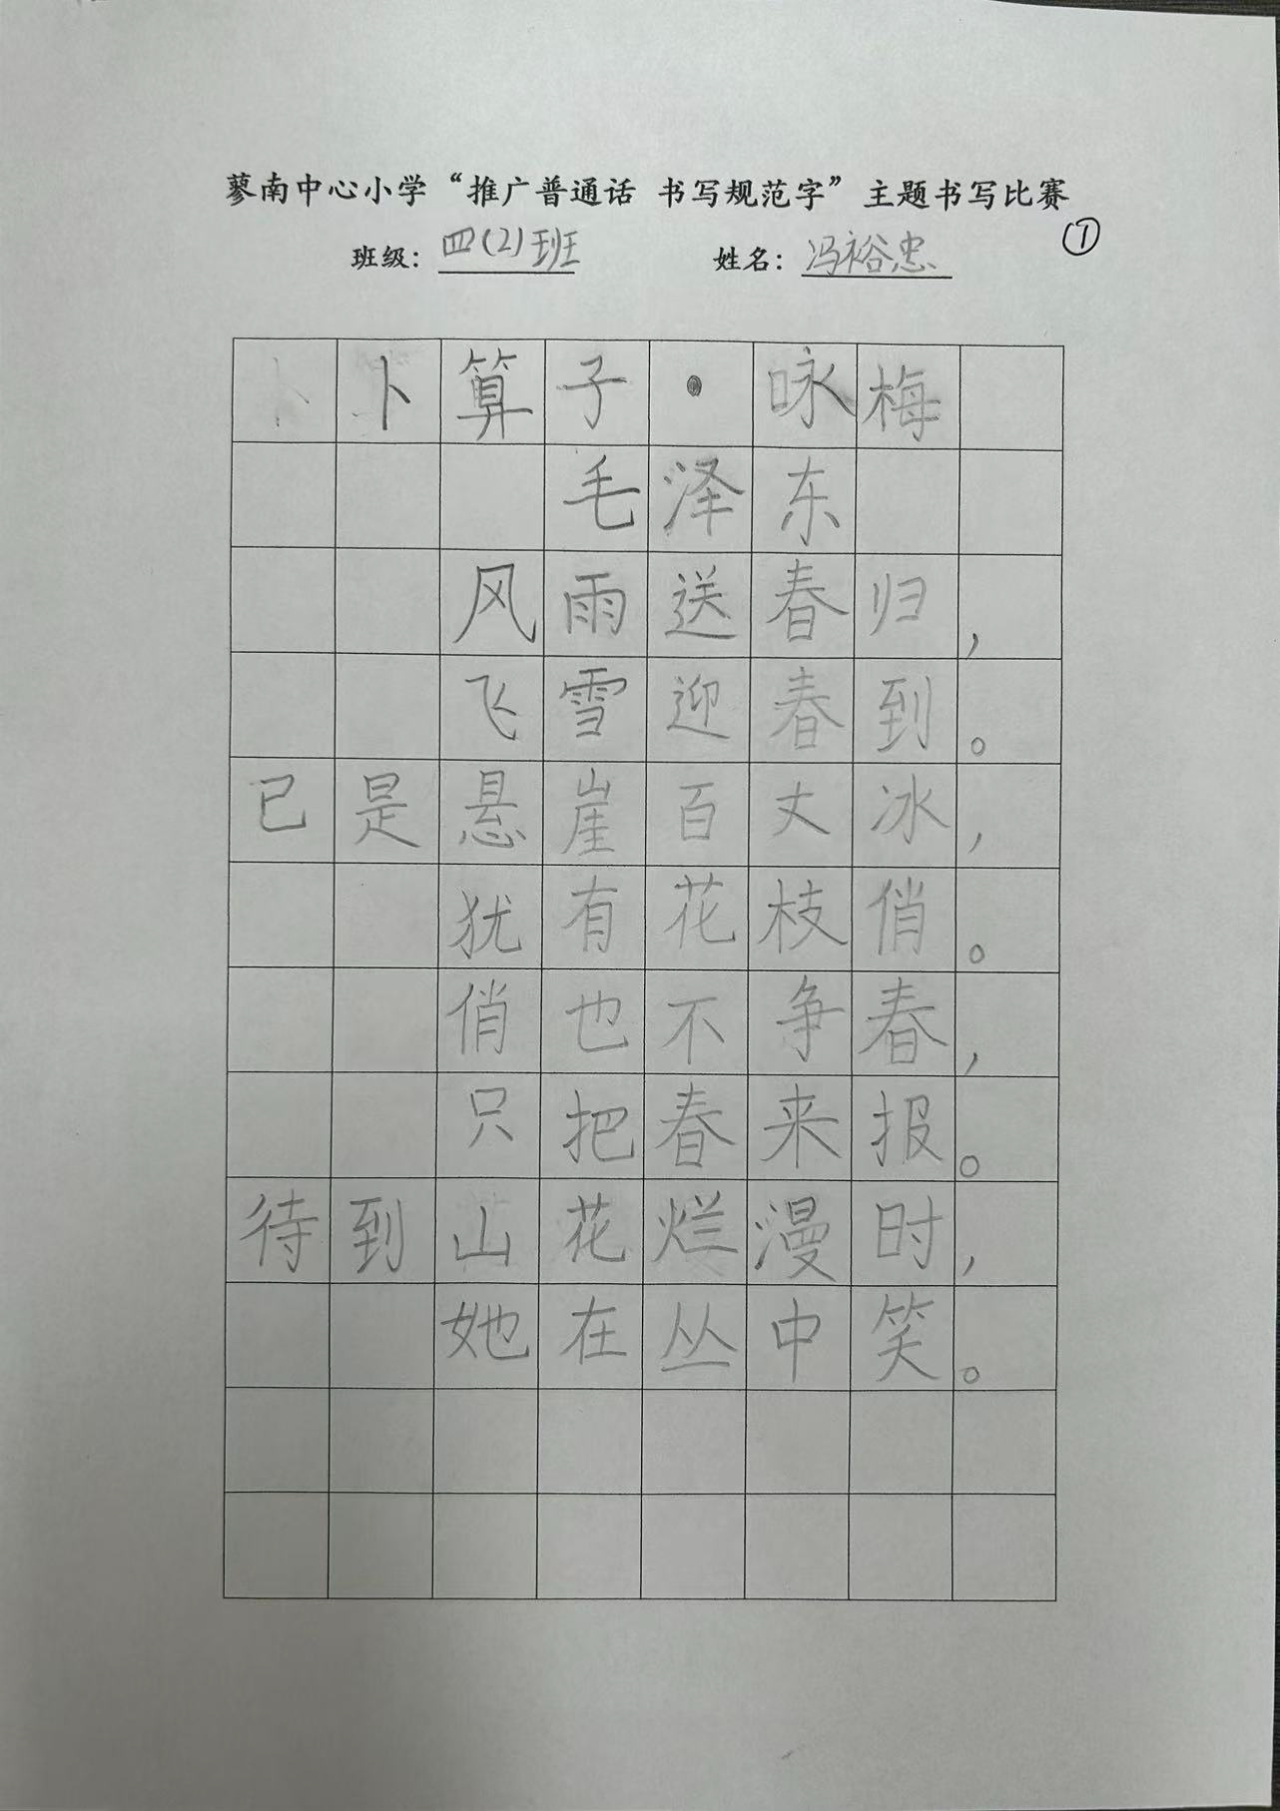 蓼南中心小学“推广普通话 书写规范字”主题书写比赛
班级：四(2)班 姓名：冯裕忠 ①
卜算子·咏梅
毛泽东
风雨送春归，
飞雪迎春到。
已是悬崖百丈冰，
犹有花枝俏。
俏也不争春，
只把春来报。
待到山花烂漫时，
她在丛中笑。